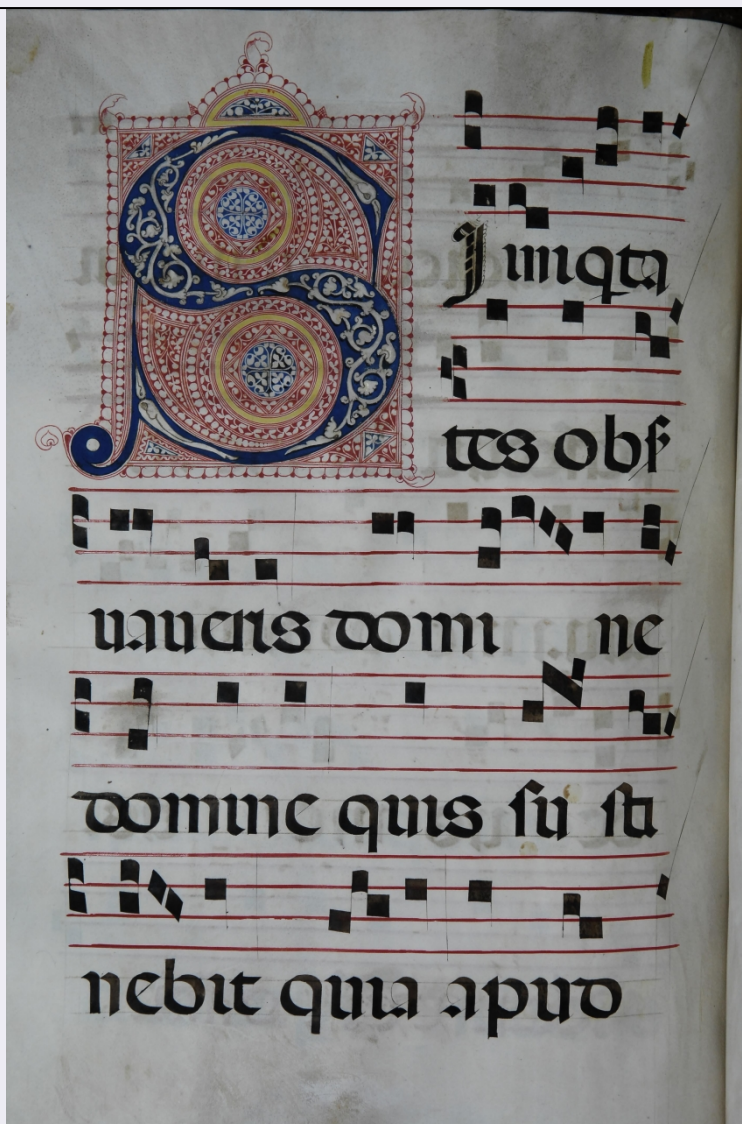 SJ iniqta
tes obs
uaueris domi ne
domine quis su sti
nebit quia apud